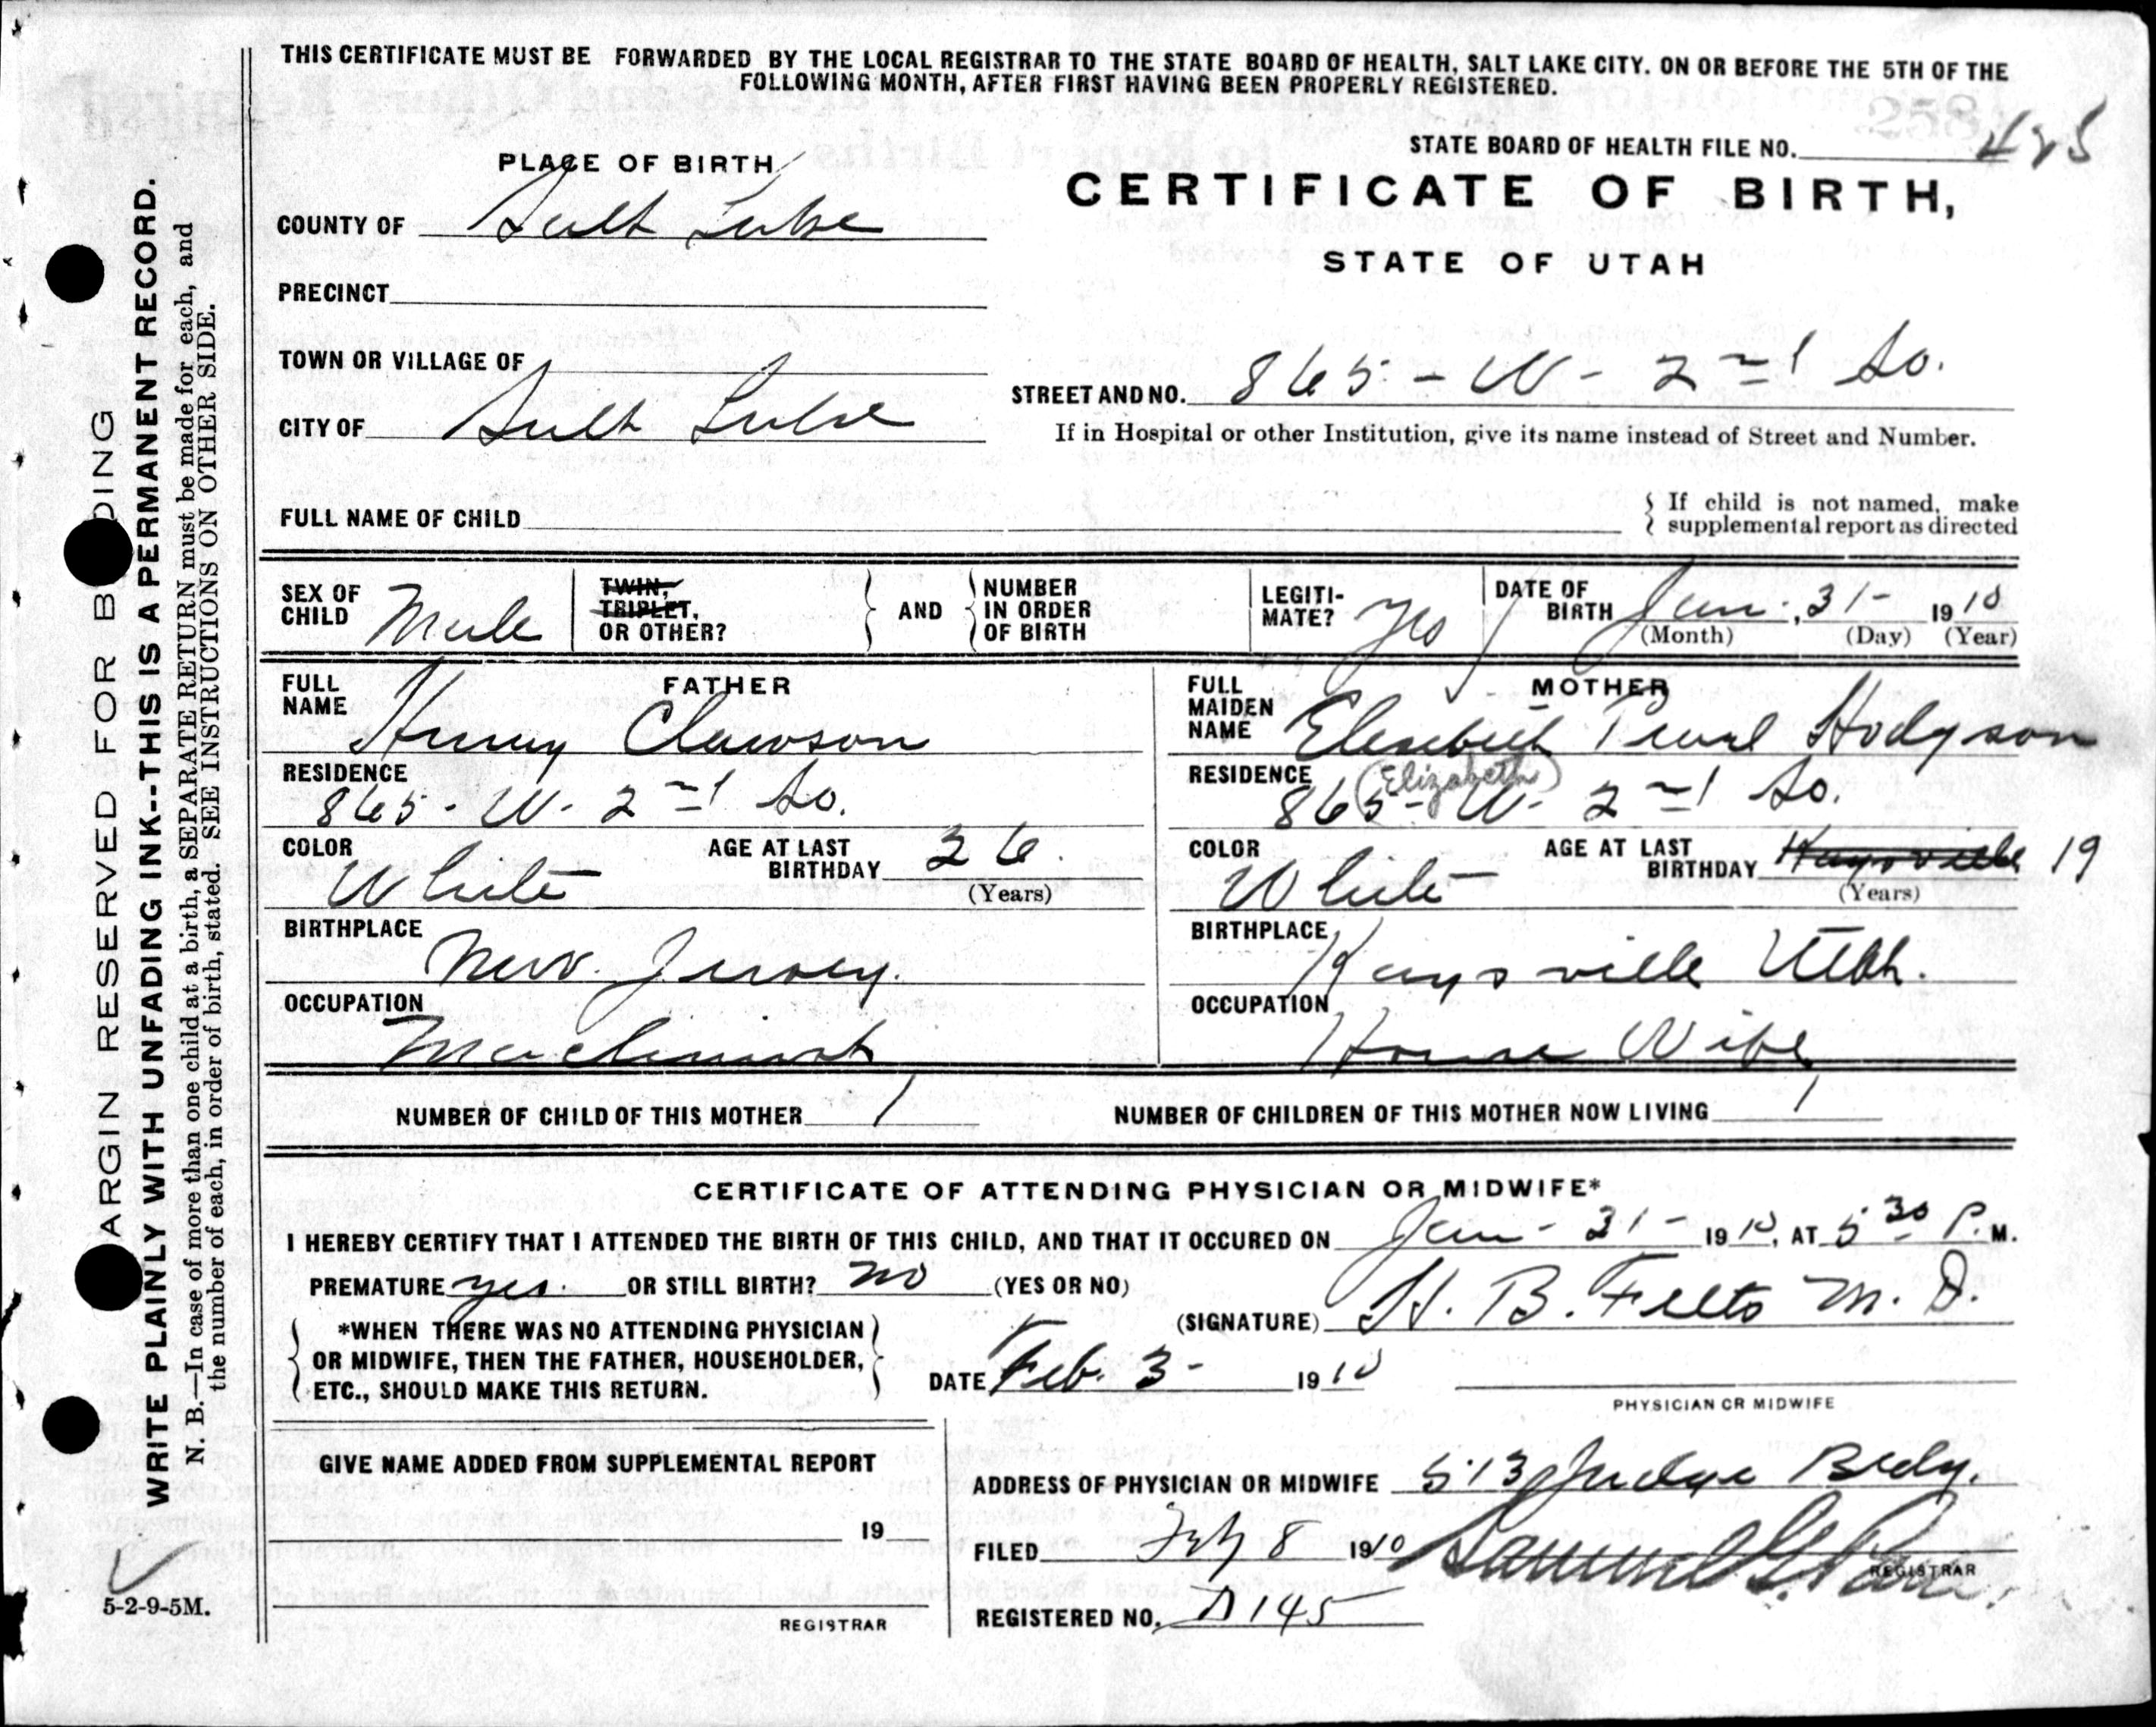 THIS CERTIFICATE MUST BE FORWARDED BY THE LOCAL REGISTRAR TO THE STATE BOARD OF HEALTH, SALT LAKE CITY. ON OR BEFORE THE 5TH OF THE
FOLLOWING MONTH, AFTER FIRST HAVING BEEN PROPERLY REGISTERED.
258
STATE BOARD OF HEALTH FILE NO.
PLACE OF BIRTH
CERTIFICATE OF BIRTH,
COUNTY OF Salt Lake
STATE OF UTAH
PRECINCT
TOWN OR VILLAGE OF
STREET AND NO. 865 - W - 2nd So.
CITY OF Salt Lake
If in Hospital or other Institution, give its name instead of Street and Number.
FULL NAME OF CHILD
If child is not named, make
supplemental report as directed
SEX OF CHILD Male
TWIN, TRIPLET, OR OTHER?
AND
NUMBER IN ORDER OF BIRTH
LEGITI-MATE? Yes
DATE OF BIRTH Jan. 31 - 1910
(Month) (Day) (Year)
FATHER
FULL NAME Henry Clawson
RESIDENCE
865 - W - 2nd So.
COLOR White
AGE AT LAST BIRTHDAY 26.
(Years)
BIRTHPLACE
New Jersey.
OCCUPATION
Machinist
MOTHER
FULL MAIDEN NAME Elesebeth Pearl Hodgson
(Elizabeth)
RESIDENCE
865 - W - 2nd So.
COLOR White
AGE AT LAST BIRTHDAY Kaysville 19
(Years)
BIRTHPLACE
Kaysville Utah.
OCCUPATION
House Wife
NUMBER OF CHILD OF THIS MOTHER 1
NUMBER OF CHILDREN OF THIS MOTHER NOW LIVING 1
CERTIFICATE OF ATTENDING PHYSICIAN OR MIDWIFE*
I HEREBY CERTIFY THAT I ATTENDED THE BIRTH OF THIS CHILD, AND THAT IT OCCURED ON Jan - 31 - 1910, AT 5 30 P. M.
PREMATURE yes. OR STILL BIRTH? no (YES OR NO)
(SIGNATURE) H. B. Felts M. D.
*WHEN THERE WAS NO ATTENDING PHYSICIAN
OR MIDWIFE, THEN THE FATHER, HOUSEHOLDER,
ETC., SHOULD MAKE THIS RETURN.
DATE Feb. 3 - 1910
PHYSICIAN OR MIDWIFE
GIVE NAME ADDED FROM SUPPLEMENTAL REPORT
19
REGISTRAR
ADDRESS OF PHYSICIAN OR MIDWIFE 513 Judge Bldg.
FILED Feby 8 1910 Samuel G. Paul
REGISTRAR
REGISTERED NO. D 145
5-2-9-5M.
ARGIN RESERVED FOR B DING
WRITE PLAINLY WITH UNFADING INK--THIS IS A PERMANENT RECORD.
N. B.—In case of more than one child at a birth, a SEPARATE RETURN must be made for each, and
the number of each, in order of birth, stated. SEE INSTRUCTIONS ON OTHER SIDE.